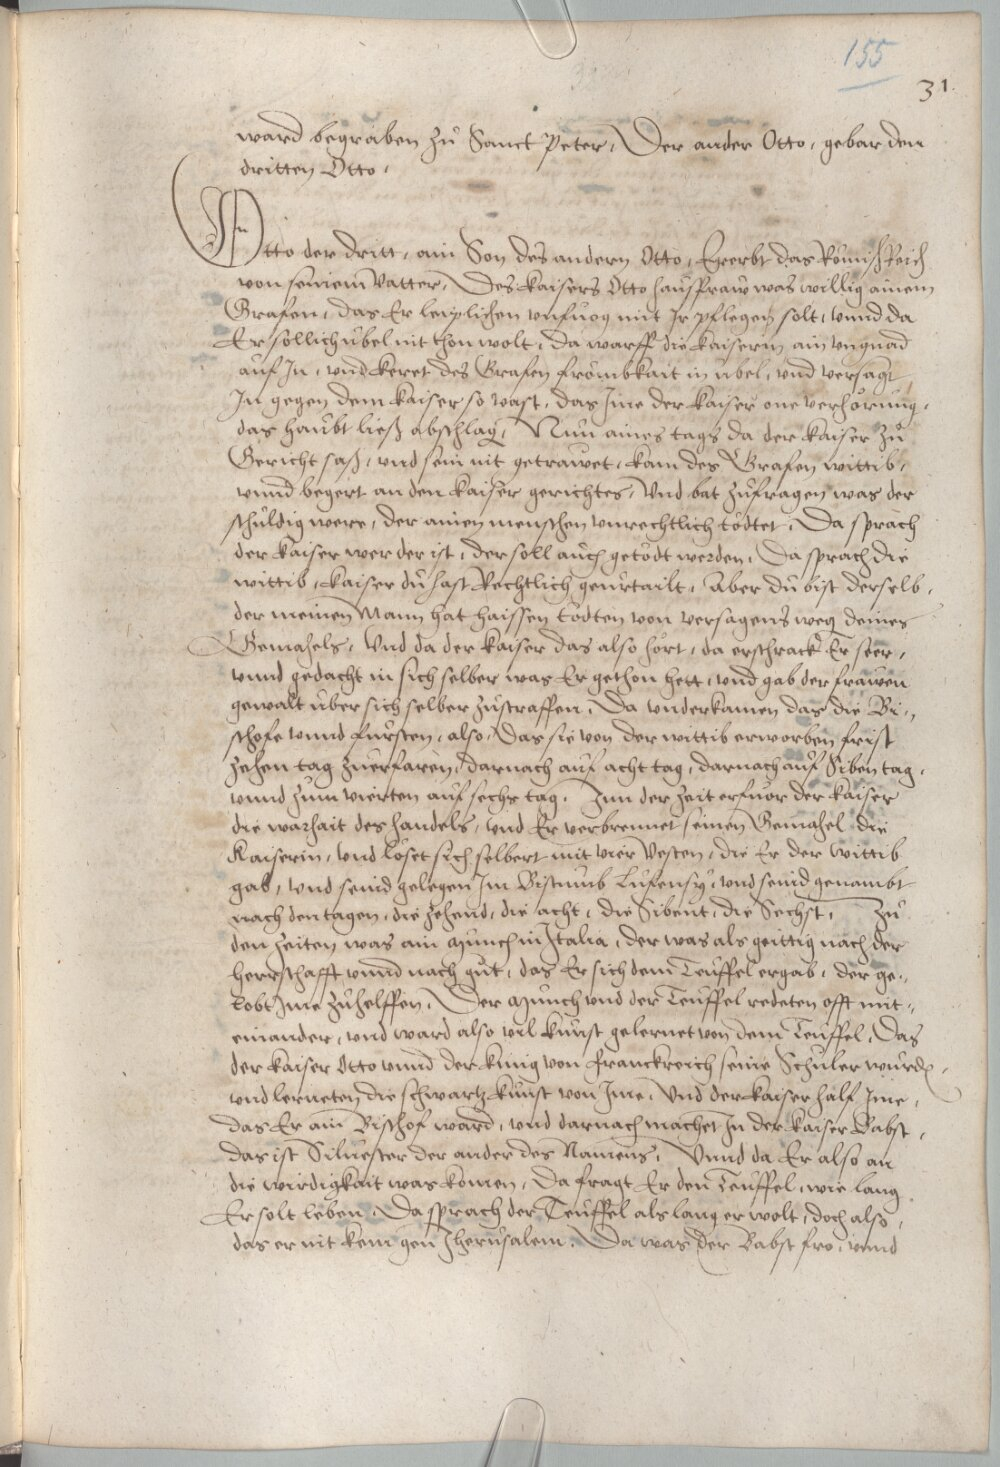 155
31.
ward begraben zů Sanct Peter, Der ander Otto, gebar den
dritten Otto.
Otto der dritt, ain Son des andern Otto, Ererbt das Römisch Reich
von seinem Vatter, Des kaisers Otto haußfraw was willig ainem
Grafen, das Er leiplichen unfuog mit Ir pflegen solt, vnnd da
Er sollich übel nit thon wolt, da warff die kaiserin ain vngnad
auf In, vnd keret des Grafen frombkait in übel, vnd versagt
In gegen dem kaiser so vast, das Ime der kaiser one verhörung,
das haubt ließ abschlag, Nun aines tags da der kaiser zů
Gericht saß, vnd sein nit getrawet, kam des Grafen wittib,
vnnd begert an den kaiser gerichtes, Vnd bat zufragen was der
schuldig were, der ainen menschen vnrechtlich tödtet, Da sprach
der kaiser wer der ist, der soll auch getödt werden, Da sprach die
wittib, kaiser du hast Rechtlich geurtailt, Aber du bist derselb,
der meinen Mann hat haissen tödten von versagens weg deines
Gemahels, Vnd da der kaiser das also hört, da erschrack Er seer,
vnnd gedacht in sich selber was Er gethon hett, vnd gab der frawen
gewalt über sich selber zustraffen, Da vnderkamen das die Bi-
schofe vnnd fürsten, also, Das sie von der wittib erworben frist
zehen tag zuerfaren, darnach auf acht tag, darnach auf Siben tag,
vnnd zum vierten auf sechs tag, Inn der zeit erfuor der kaiser
die warhait des handels, vnd Er verbrennet seinen Gemahel die
Kaiserin, vnd löset sich selbert mit vier Vesten, die Er der wittib
gab, vnd seind gelegen Im Bistumb Lufensy, vnd seind genambt
nach den tagen, die zehend, die acht, die Sibent, die Sechst, Zů
den zeiten was ain münch in Italia, der was als geittig nach der
herrschafft vnnd nach gůt, das Er sich dem Teuffel ergab, der ge-
lobt Ime zuhelffen, Der münch vnd der Teuffel redeten offt mit-
einander, vnd ward also vil kunst gelernet von dem Teuffel, Das
der kaiser Otto vnnd der künig von Franckreich seine Schuler wurdn,
vnd lerneten die schwartz kunst von Ime, Vnd der kaiser half Ime,
das Er ain Bischof ward, vnd darnach machet In der kaiser Babst,
das ist Siluester der ander des Namens, Vnnd da Er also an
die wirdigkait was komen, Da fragt Er den Teuffel, wie lang
Er solt leben, Da sprach der Teuffel als lang er wolt, doch alß,
das er nit kem gen Jherusalem, Da was der Babst fro, vnnd